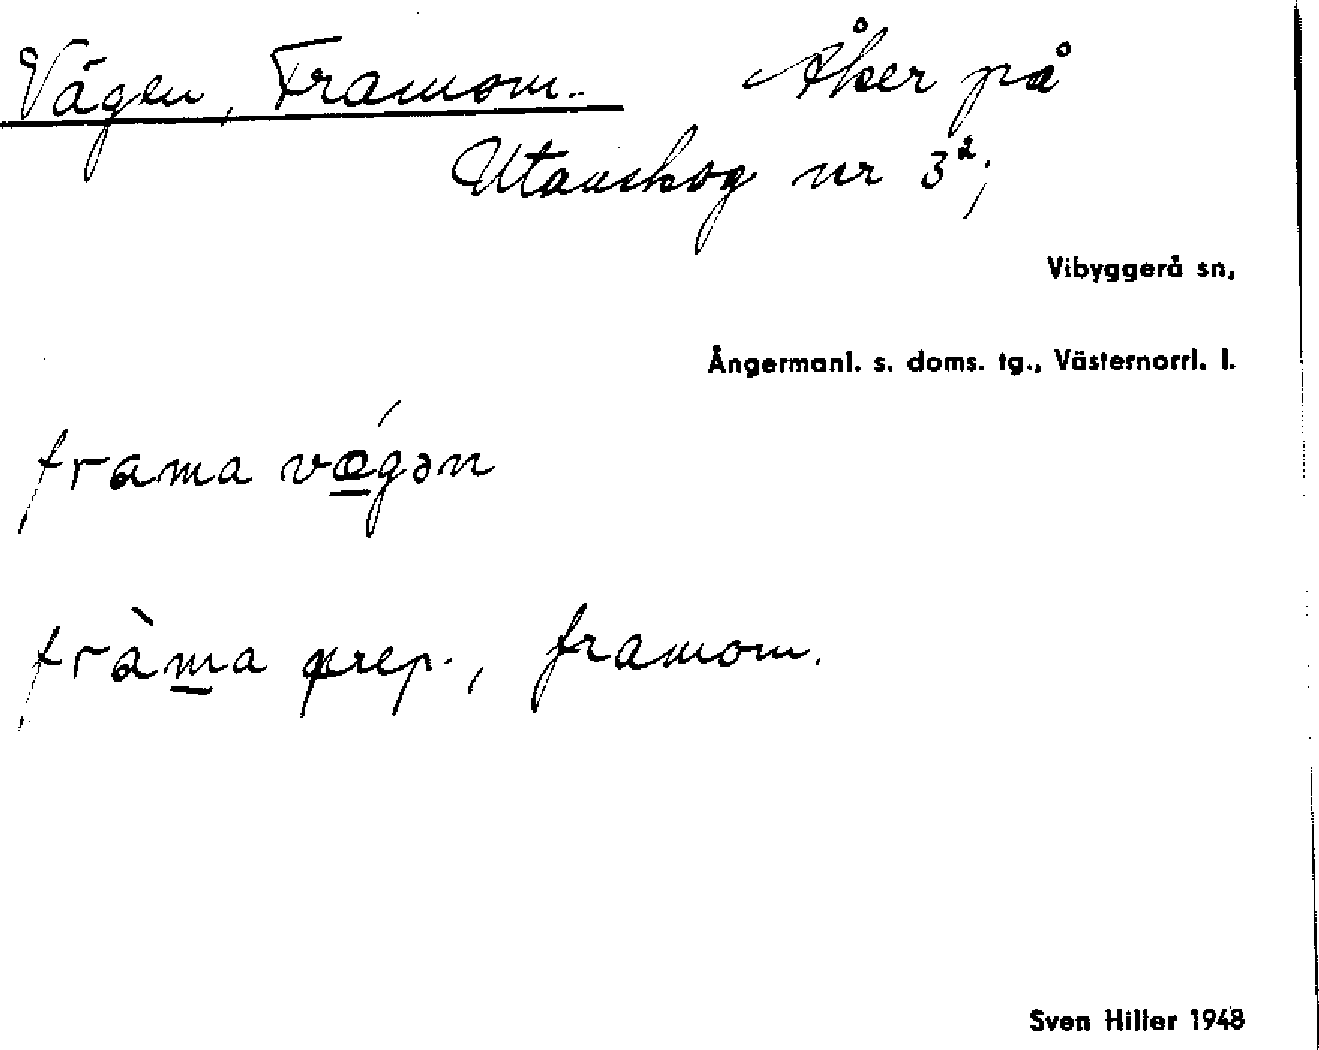 Vägen, Framom. Åker på
Utanskog nr 3²;
Vibyggerå sn,
Ångermanl. s. doms. tg., Västernorrl. l.
frama vǽgən
fràma prep., framom.
Sven Hiller 1948